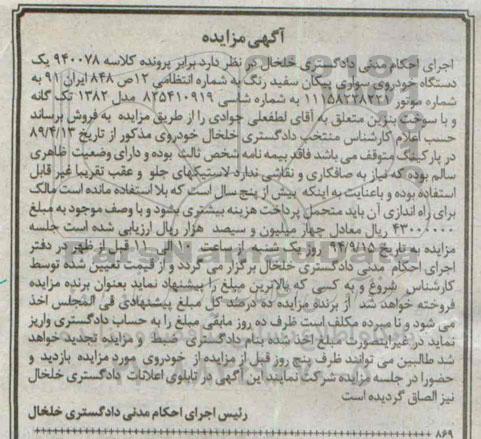 آگهی مزایده
اجرای احکام مدنی دادگستری خلخال در نظر دارد برابر پرونده کلاسه ۹۴۰۰۷۸ یک
دستگاه خودروی سواری پیکان سفید رنگ به شماره انتظامی ۱۲ص ۸۴۸ ایران ۹۱ به
شماره موتور ۱۱۱۵۸۲۲۸۳۲۱ به شماره شاسی ۸۲۵۴۱۰۹۱۹ مدل ۱۳۸۲ تک گانه
و با سوخت بنزین متعلق به آقای لطفعلی جوادی را از طریق مزایده به فروش برساند
حسب اعلام کارشناس منتخب دادگستری خلخال خودروی مذکور از تاریخ ۸۹/۴/۱۳
در پارکینگ متوقف می باشد فاقد بیمه نامه شخص ثالث بوده و دارای وضعیت ظاهری
سالم بوده که نیاز به صافکاری و نقاشی ندارد لاستیکهای جلو و عقب تقریبا غیر قابل
استفاده بوده و باعنایت به اینکه بیش از پنج سال است که بلا استفاده مانده است مالک
برای راه اندازی آن باید متحمل پرداخت هزینه بیشتری بشود و با وصف موجود به مبلغ
۴۳۰۰۰۰۰ ریال معادل چهار میلیون و سیصد هزار ریال ارزیابی شده است جلسه
مزایده به تاریخ ۹۴/۹/۱۵ روز یک شنبه از ساعت ۱۰ الی ۱۱ قبل از ظهر در دفتر
اجرای احکام مدنی دادگستری خلخال برگزار می گردد و از قیمت تعیین شده توسط
کارشناس شروع و به کسی که بالاترین مبلغ را پیشنهاد نماید بعنوان برنده مزایده
فروخته خواهد شد از برنده مزایده ده درصد کل مبلغ پیشنهادی فی المجلس اخذ
می شود و نامبرده مکلف است ظرف ده روز مابقی مبلغ را به حساب دادگستری واریز
نماید در غیر اینصورت مبلغ اخذ شده بنام دادگستری ضبط و مزایده تجدید خواهد
شد طالبین می توانند ظرف پنج روز قبل از مزایده از خودروی مورد مزایده بازدید و
حضورا در جلسه مزایده شرکت نمایند این آگهی در تابلوی اعلانات دادگستری خلخال
نیز الصاق گردیده است
رئیس اجرای احکام مدنی دادگستری خلخال
۸۶۹
ParsNamadData